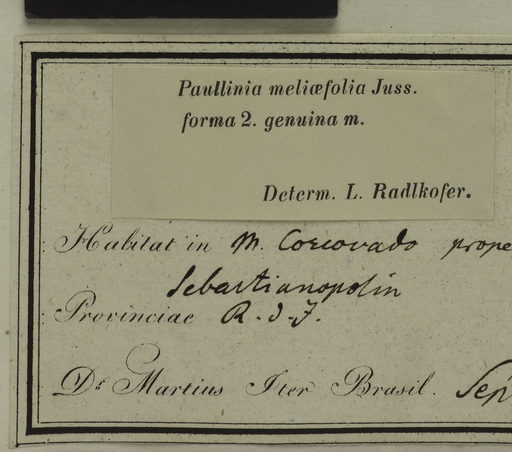 Paullinia meliæfolia Juss.
forma 2. genuina m.
Determ. L. Radlkofer.
Habitat in M. Corcovado prope
Sebastianopolin
Provinciae R. d. J.
Dr. Martius Iter Brasil. Sep